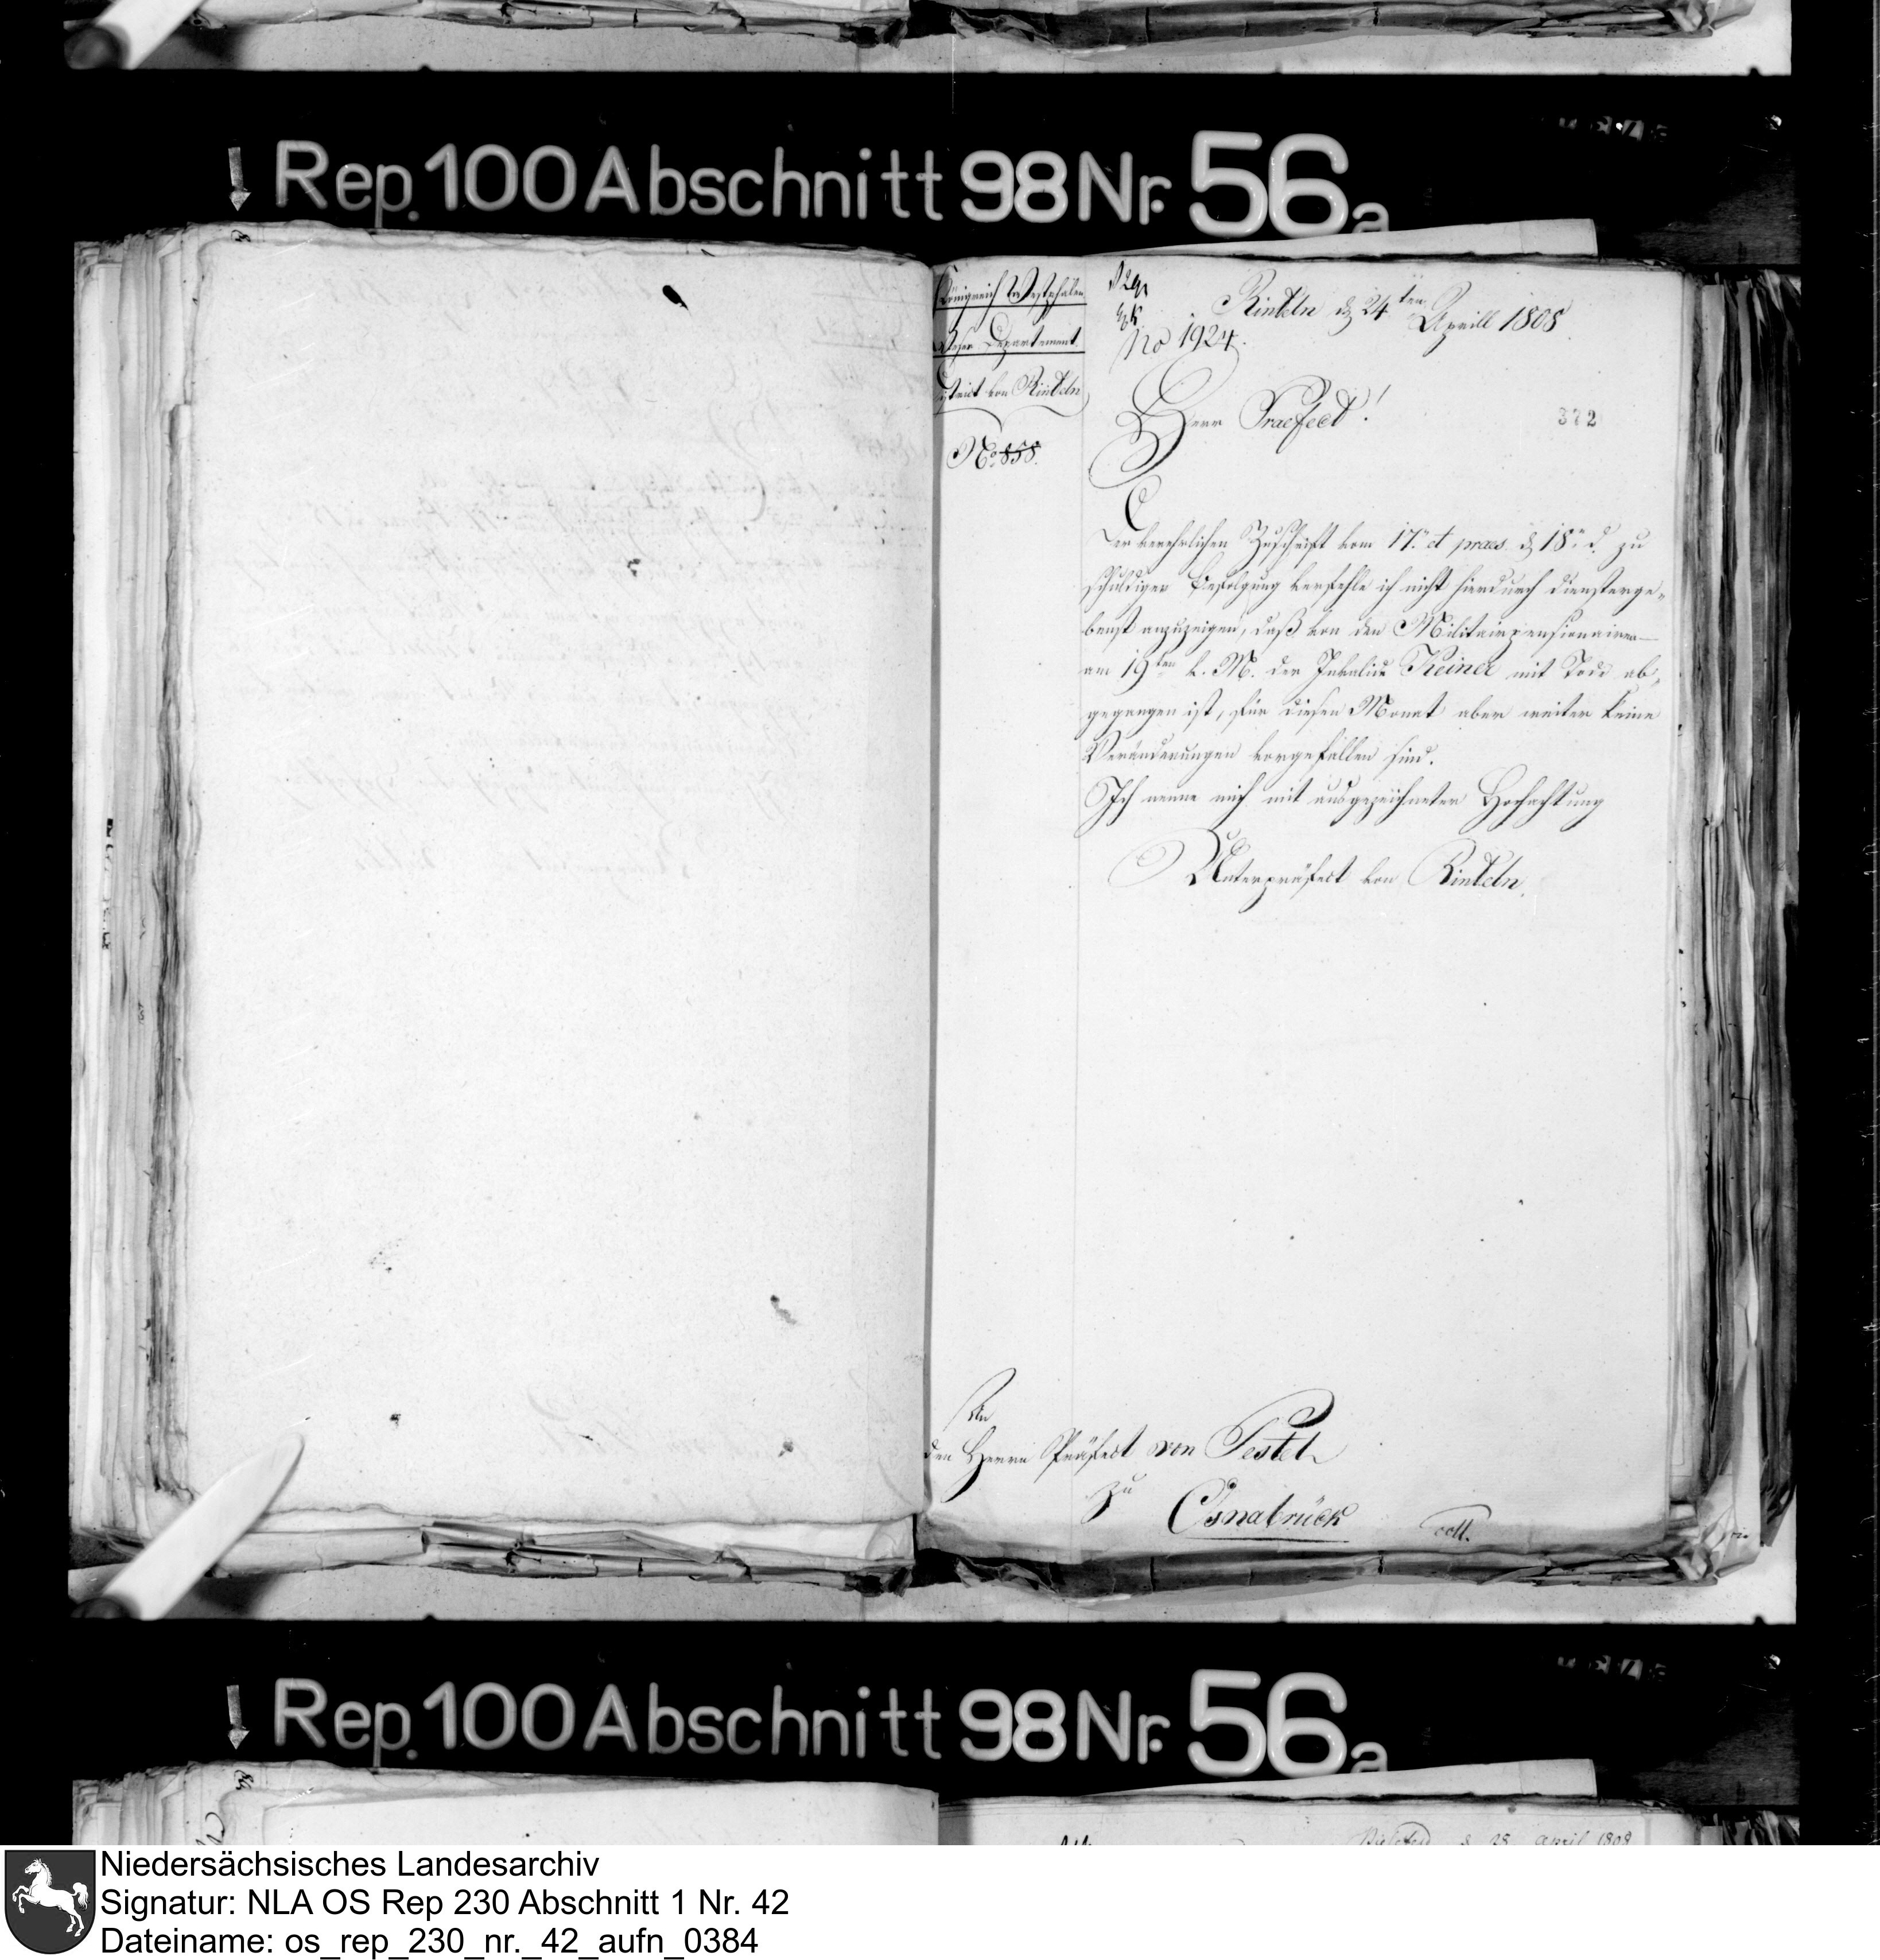 Rep. 100 Abschnitt 98 Nr. 56a
Königreich Westphalen
Weser Departement.
District von Rinteln
No 858.
No 1924.
Rinteln d 24ten Aprill 1808
372
Herr Praefect!
Der verehrlichen Zuschrift vom 17n et praes. d 18n d. zu
schuldiger Befolgung verfehle ich nicht hierdurch diensterge-
benst anzuzeigen, daß von den Militairpensionairen
am 19ten v. M. der Invalide Keiner mit Tode ab-
gegangen ist, für diesen Monat aber weiter keine
Veränderungen vorgefallen sind.
Ich nenne mich mit ausgezeichneter Hochachtung
Unterpräfect von Rinteln.
An
den Herrn Präfect von Pestel
zu
Osnabrück
coll.
Rep. 100 Abschnitt 98 Nr. 56a
Bielefeld d 28 April 1808
Niedersächsisches Landesarchiv
Signatur: NLA OS Rep 230 Abschnitt 1 Nr. 42
Dateiname: os_rep_230_nr._42_aufn_0384